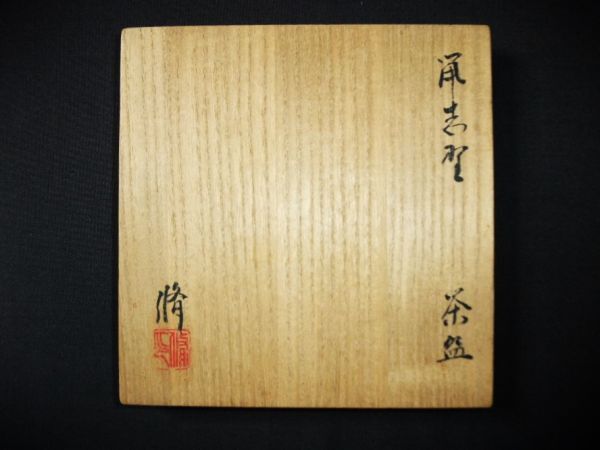 鼠志野
茶盌
脩